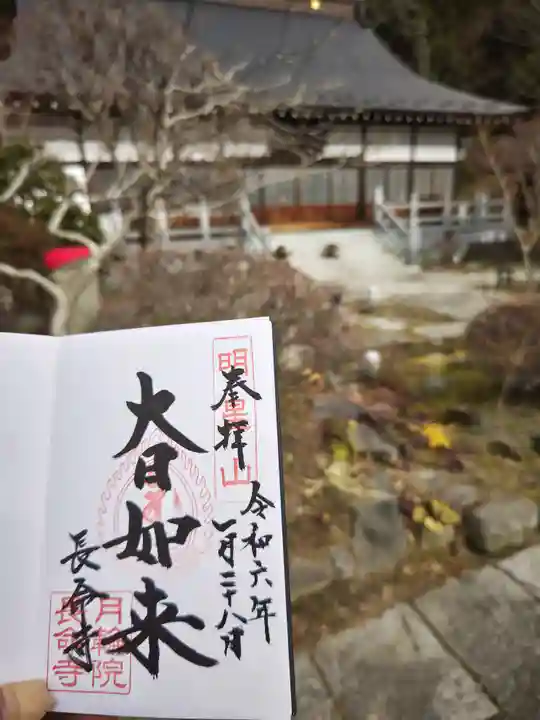 奉拝
令和六年
一月二十八日
大日如来
長命寺
明星山
月輪院
長命寺